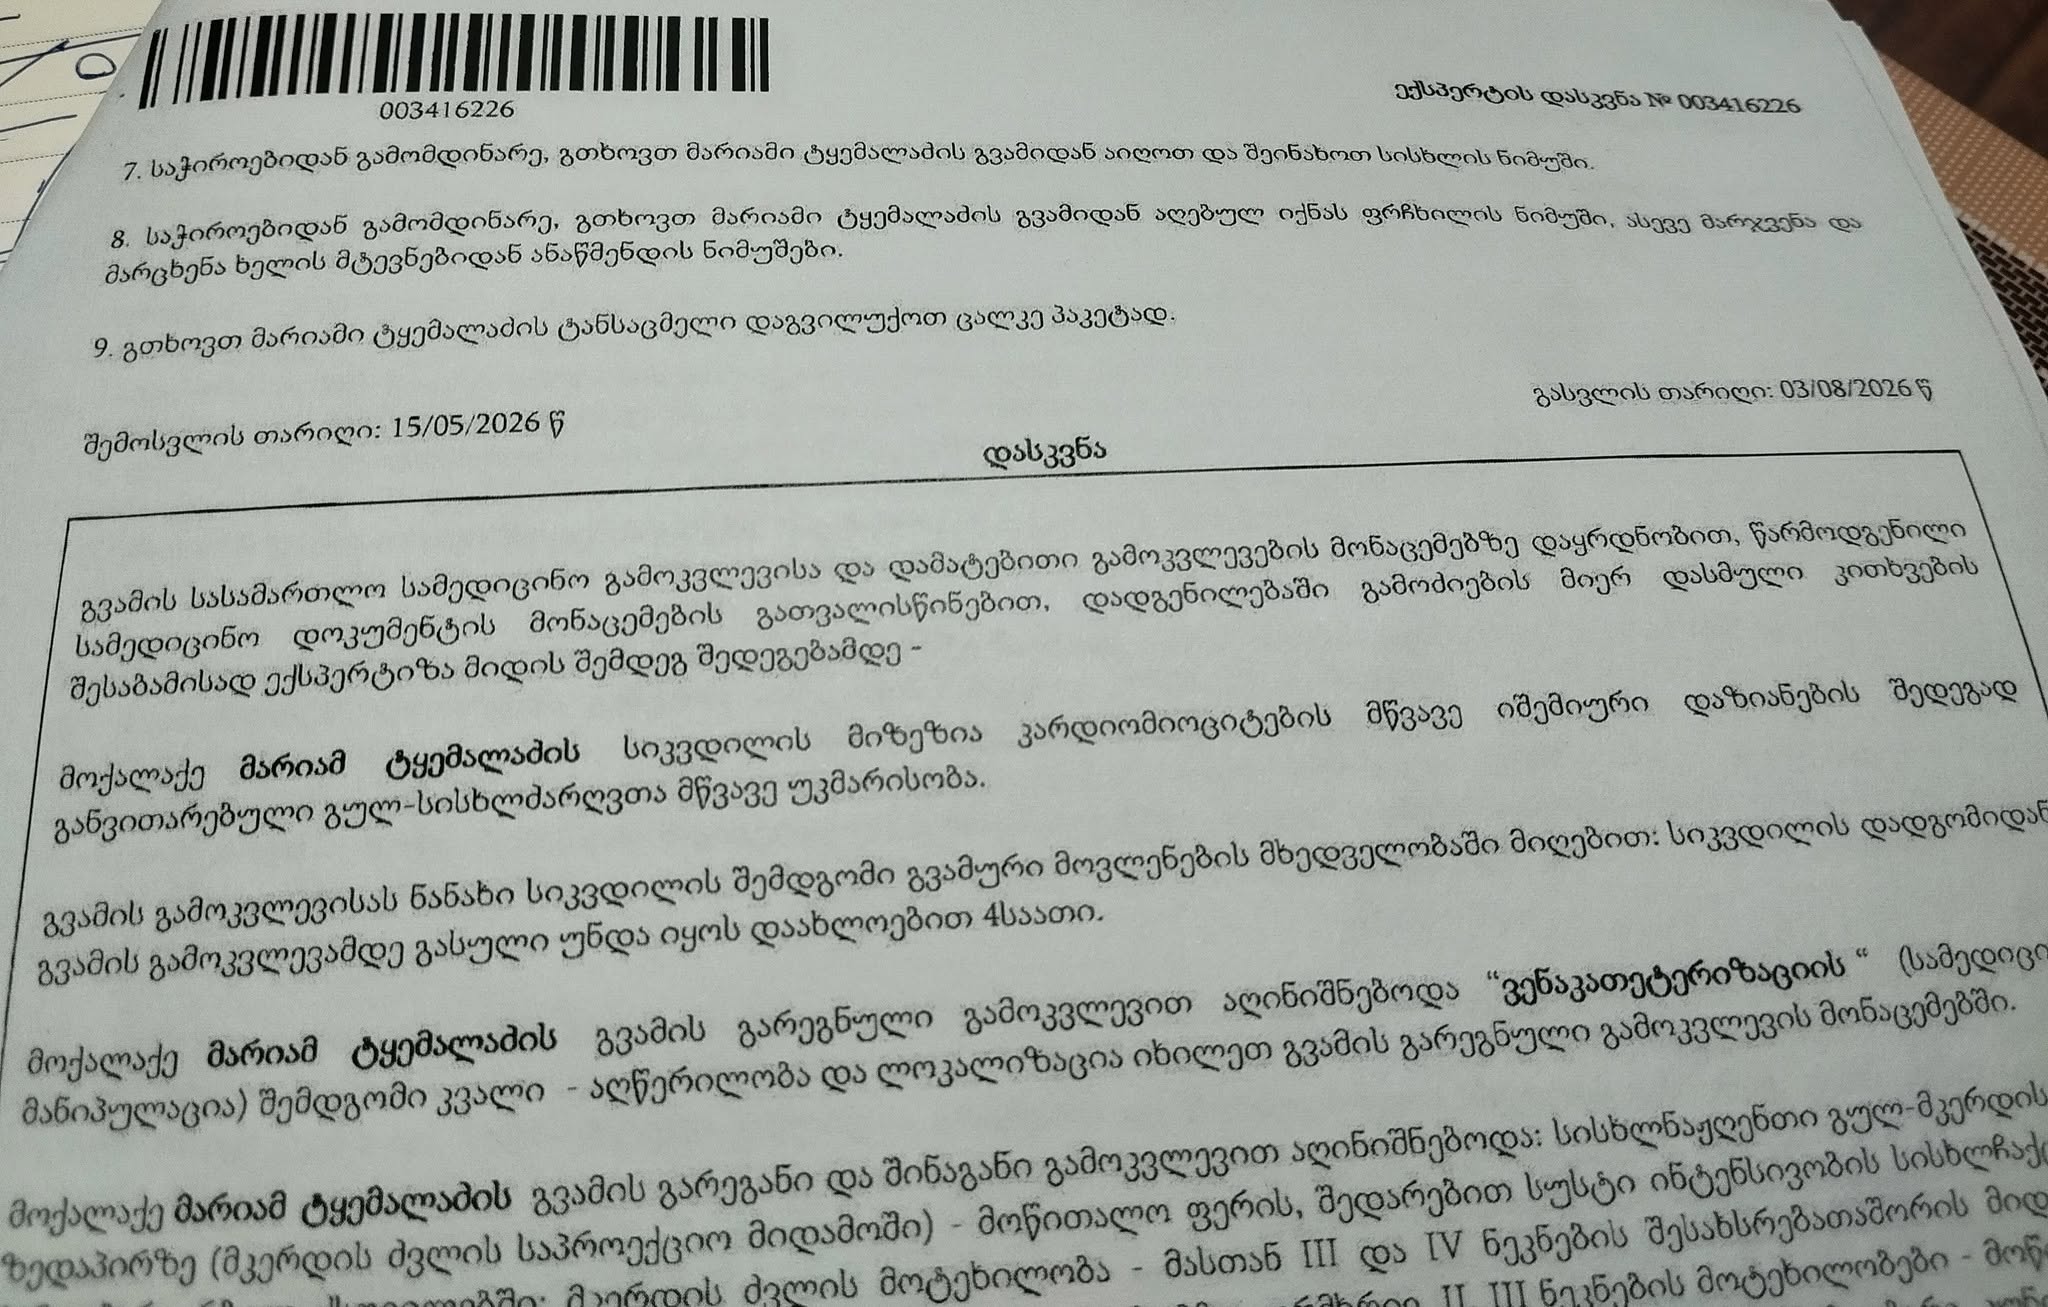 003416226
ექსპერტის დასკვნა № 003416226
7. საჭიროებიდან გამომდინარე, გთხოვთ მარიამი ტყემალაძის გვამიდან აიღოთ და შეინახოთ სისხლის ნიმუში.
8. საჭიროებიდან გამომდინარე, გთხოვთ მარიამი ტყემალაძის გვამიდან აღებულ იქნას ფრჩხილის ნიმუში, ასევე მარჯვენა და
მარცხენა ხელის მტევნებიდან ანაწმენდის ნიმუშები.
9. გთხოვთ მარიამი ტყემალაძის ტანსაცმელი დაგვილუქოთ ცალკე პაკეტად.
შემოსვლის თარიღი: 15/05/2026 წ
გასვლის თარიღი: 03/08/2026 წ
დასკვნა
გვამის სასამართლო სამედიცინო გამოკვლევისა და დამატებითი გამოკვლევების მონაცემებზე დაყრდნობით, წარმოდგენილი
სამედიცინო დოკუმენტის მონაცემების გათვალისწინებით, დადგენილებაში გამოძიების მიერ დასმული კითხვების
შესაბამისად ექსპერტიზა მიდის შემდეგ შედეგებამდე -
მოქალაქე მარიამ ტყემალაძის სიკვდილის მიზეზია კარდიომიოციტების მწვავე იშემიური დაზიანების შედეგად
განვითარებული გულ-სისხლძარღვთა მწვავე უკმარისობა.
გვამის გამოკვლევისას ნანახი სიკვდილის შემდგომი გვამური მოვლენების მხედველობაში მიღებით: სიკვდილის დადგომიდან
გვამის გამოკვლევამდე გასული უნდა იყოს დაახლოებით 4საათი.
მოქალაქე მარიამ ტყემალაძის გვამის გარეგნული გამოკვლევით აღინიშნებოდა “ვენაკათეტერიზაციის “ (სამედიცი
მანიპულაცია) შემდგომი კვალი - აღწერილობა და ლოკალიზაცია იხილეთ გვამის გარეგნული გამოკვლევის მონაცემებში.
მოქალაქე მარიამ ტყემალაძის გვამის გარეგანი და შინაგანი გამოკვლევით აღინიშნებოდა: სისხლნაჟღენთი გულ-მკერდის
ზედაპირზე (მკერდის ძვლის საპროექციო მიდამოში) - მოწითალო ფერის, შედარებით სუსტი ინტენსივობის სისხლჩაქ
მკერდის ძვლის მოტეხილობა - მასთან III და IV ნეკნების შესახსრებათაშორის მიდ
II, III ნეკნების მოტეხილობები - მოწ